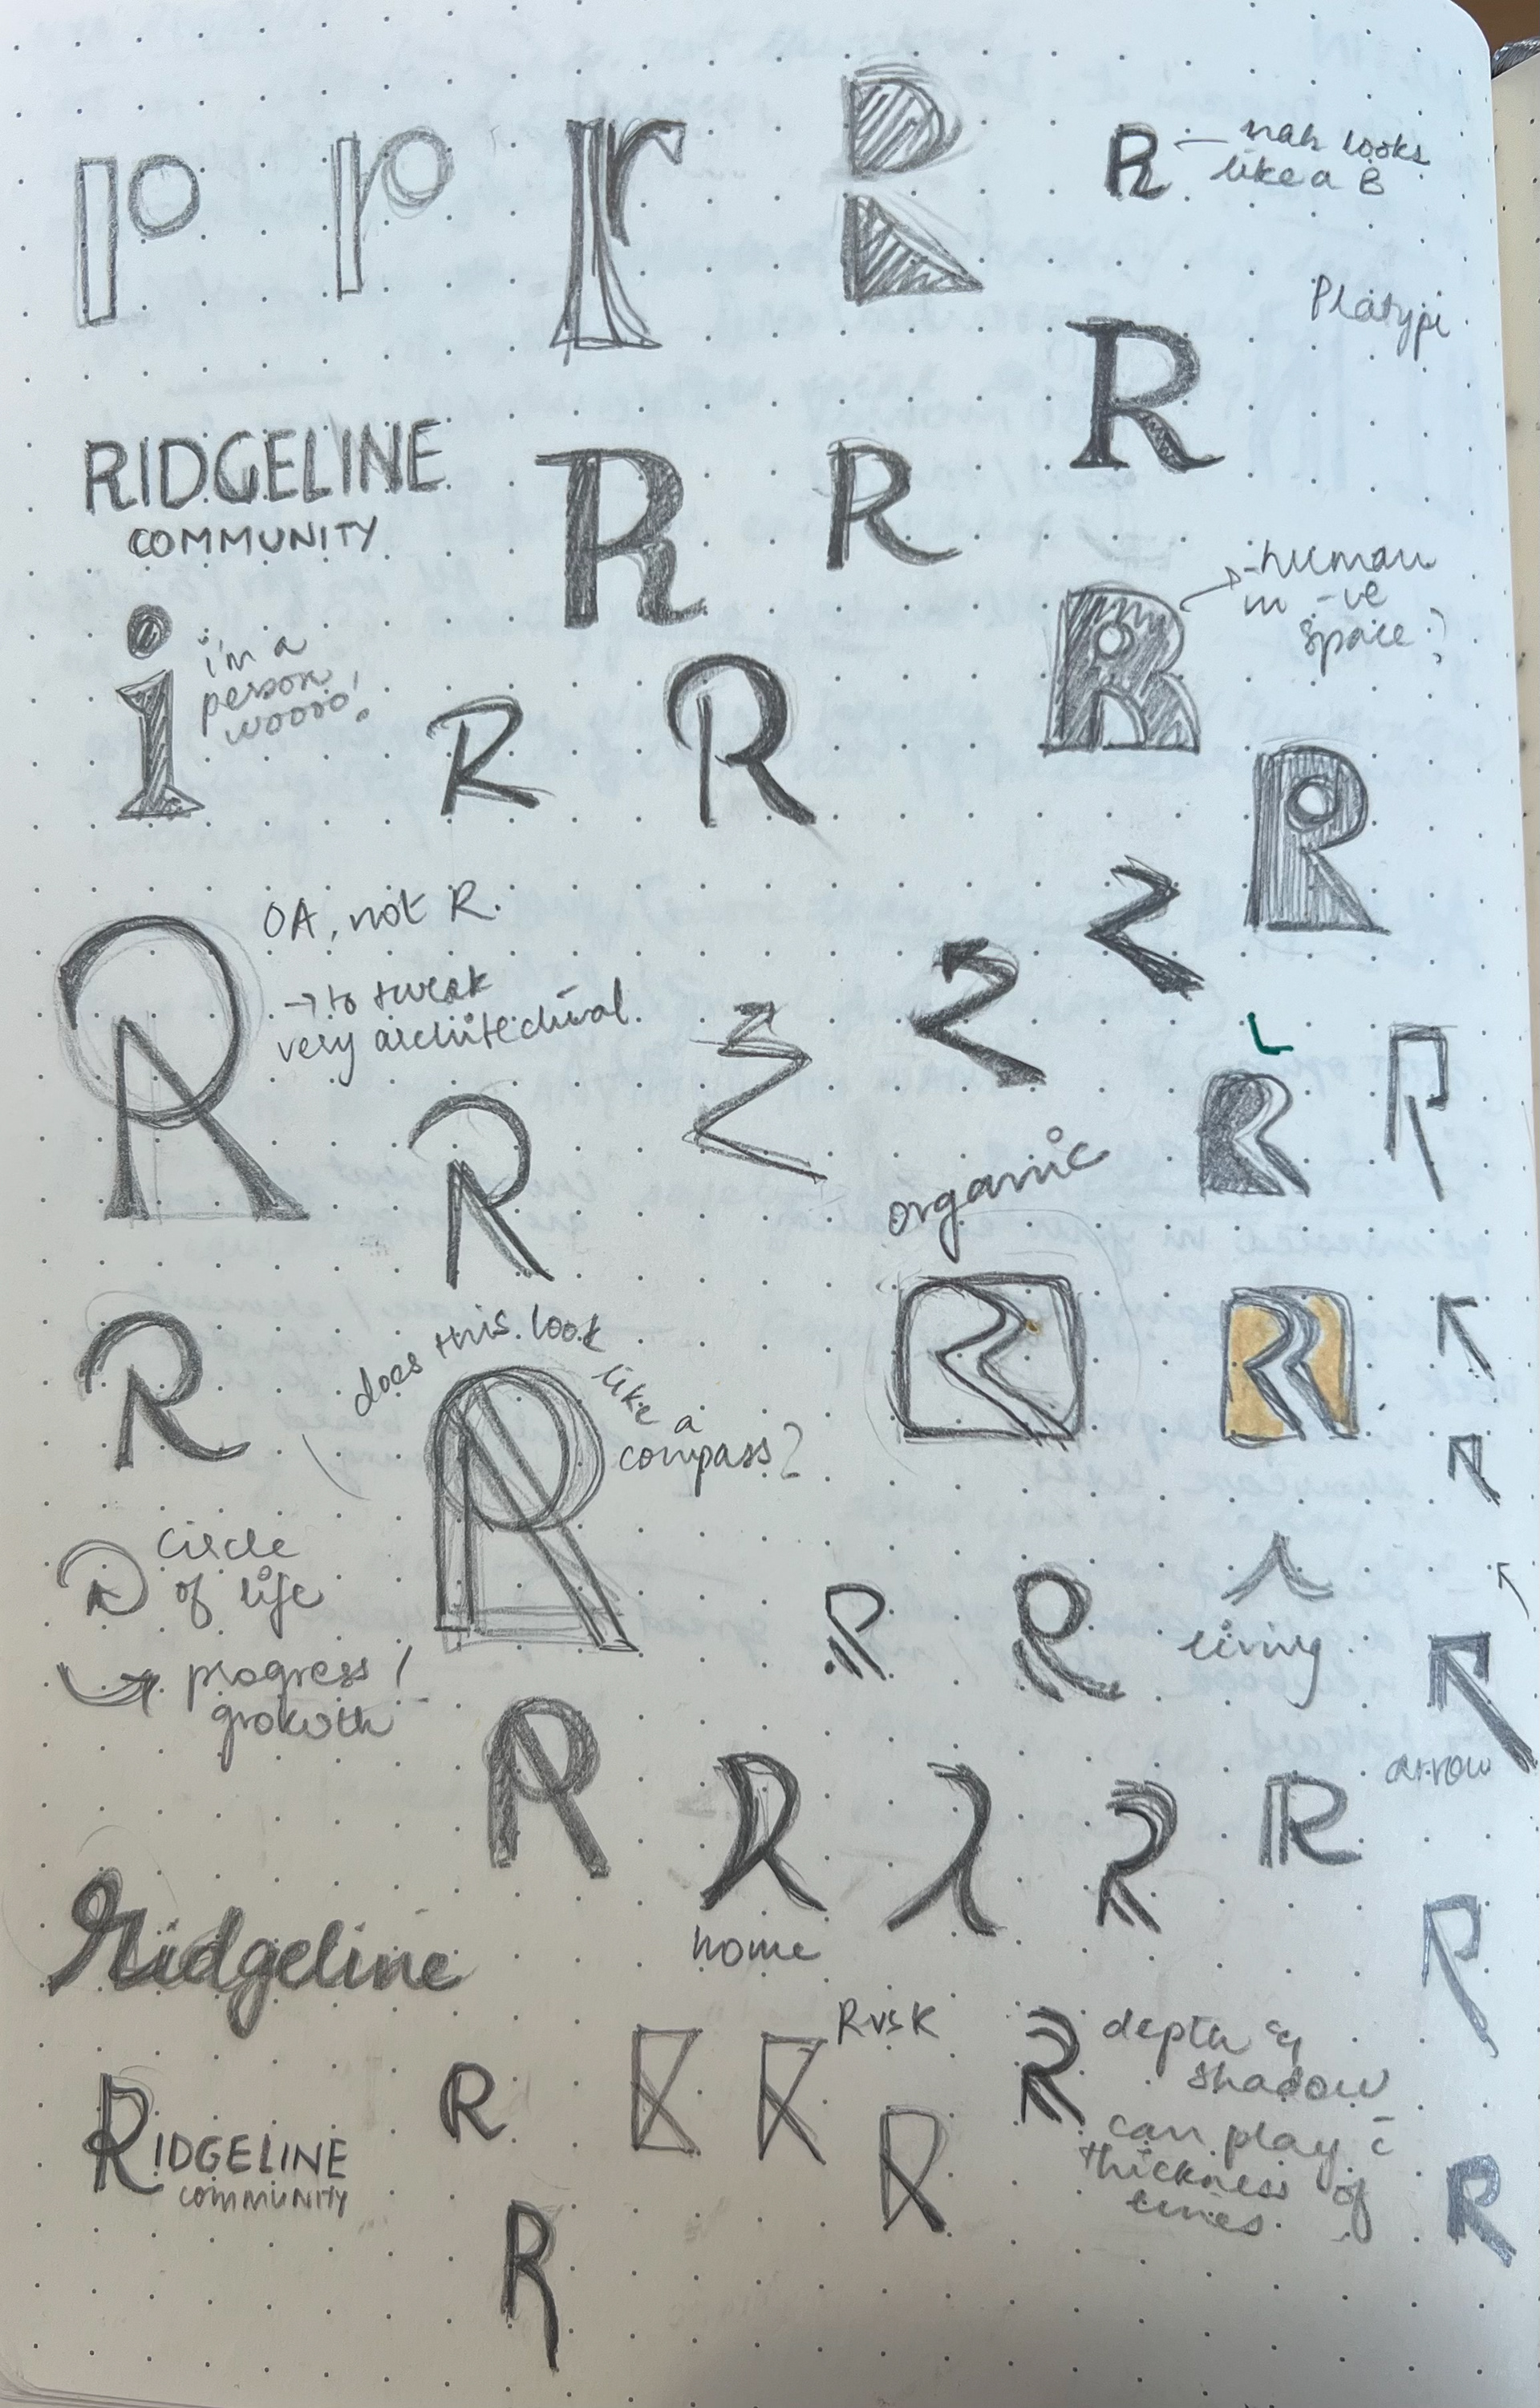 nah looks
like a B
Platypi
RIDGELINE
COMMUNITY
human
in -ve
space?
i'm a
person
woooo!
OA, not R.
→ to tweak
very architechural.
organic
does this look
like
a
compass?
Circle
of life
progress/
growth
living
arrow
home
Ridgeline
R vs K
depth &
shadow
can play c̄
thickness of
lines.
RIDGELINE
COMMUNITY